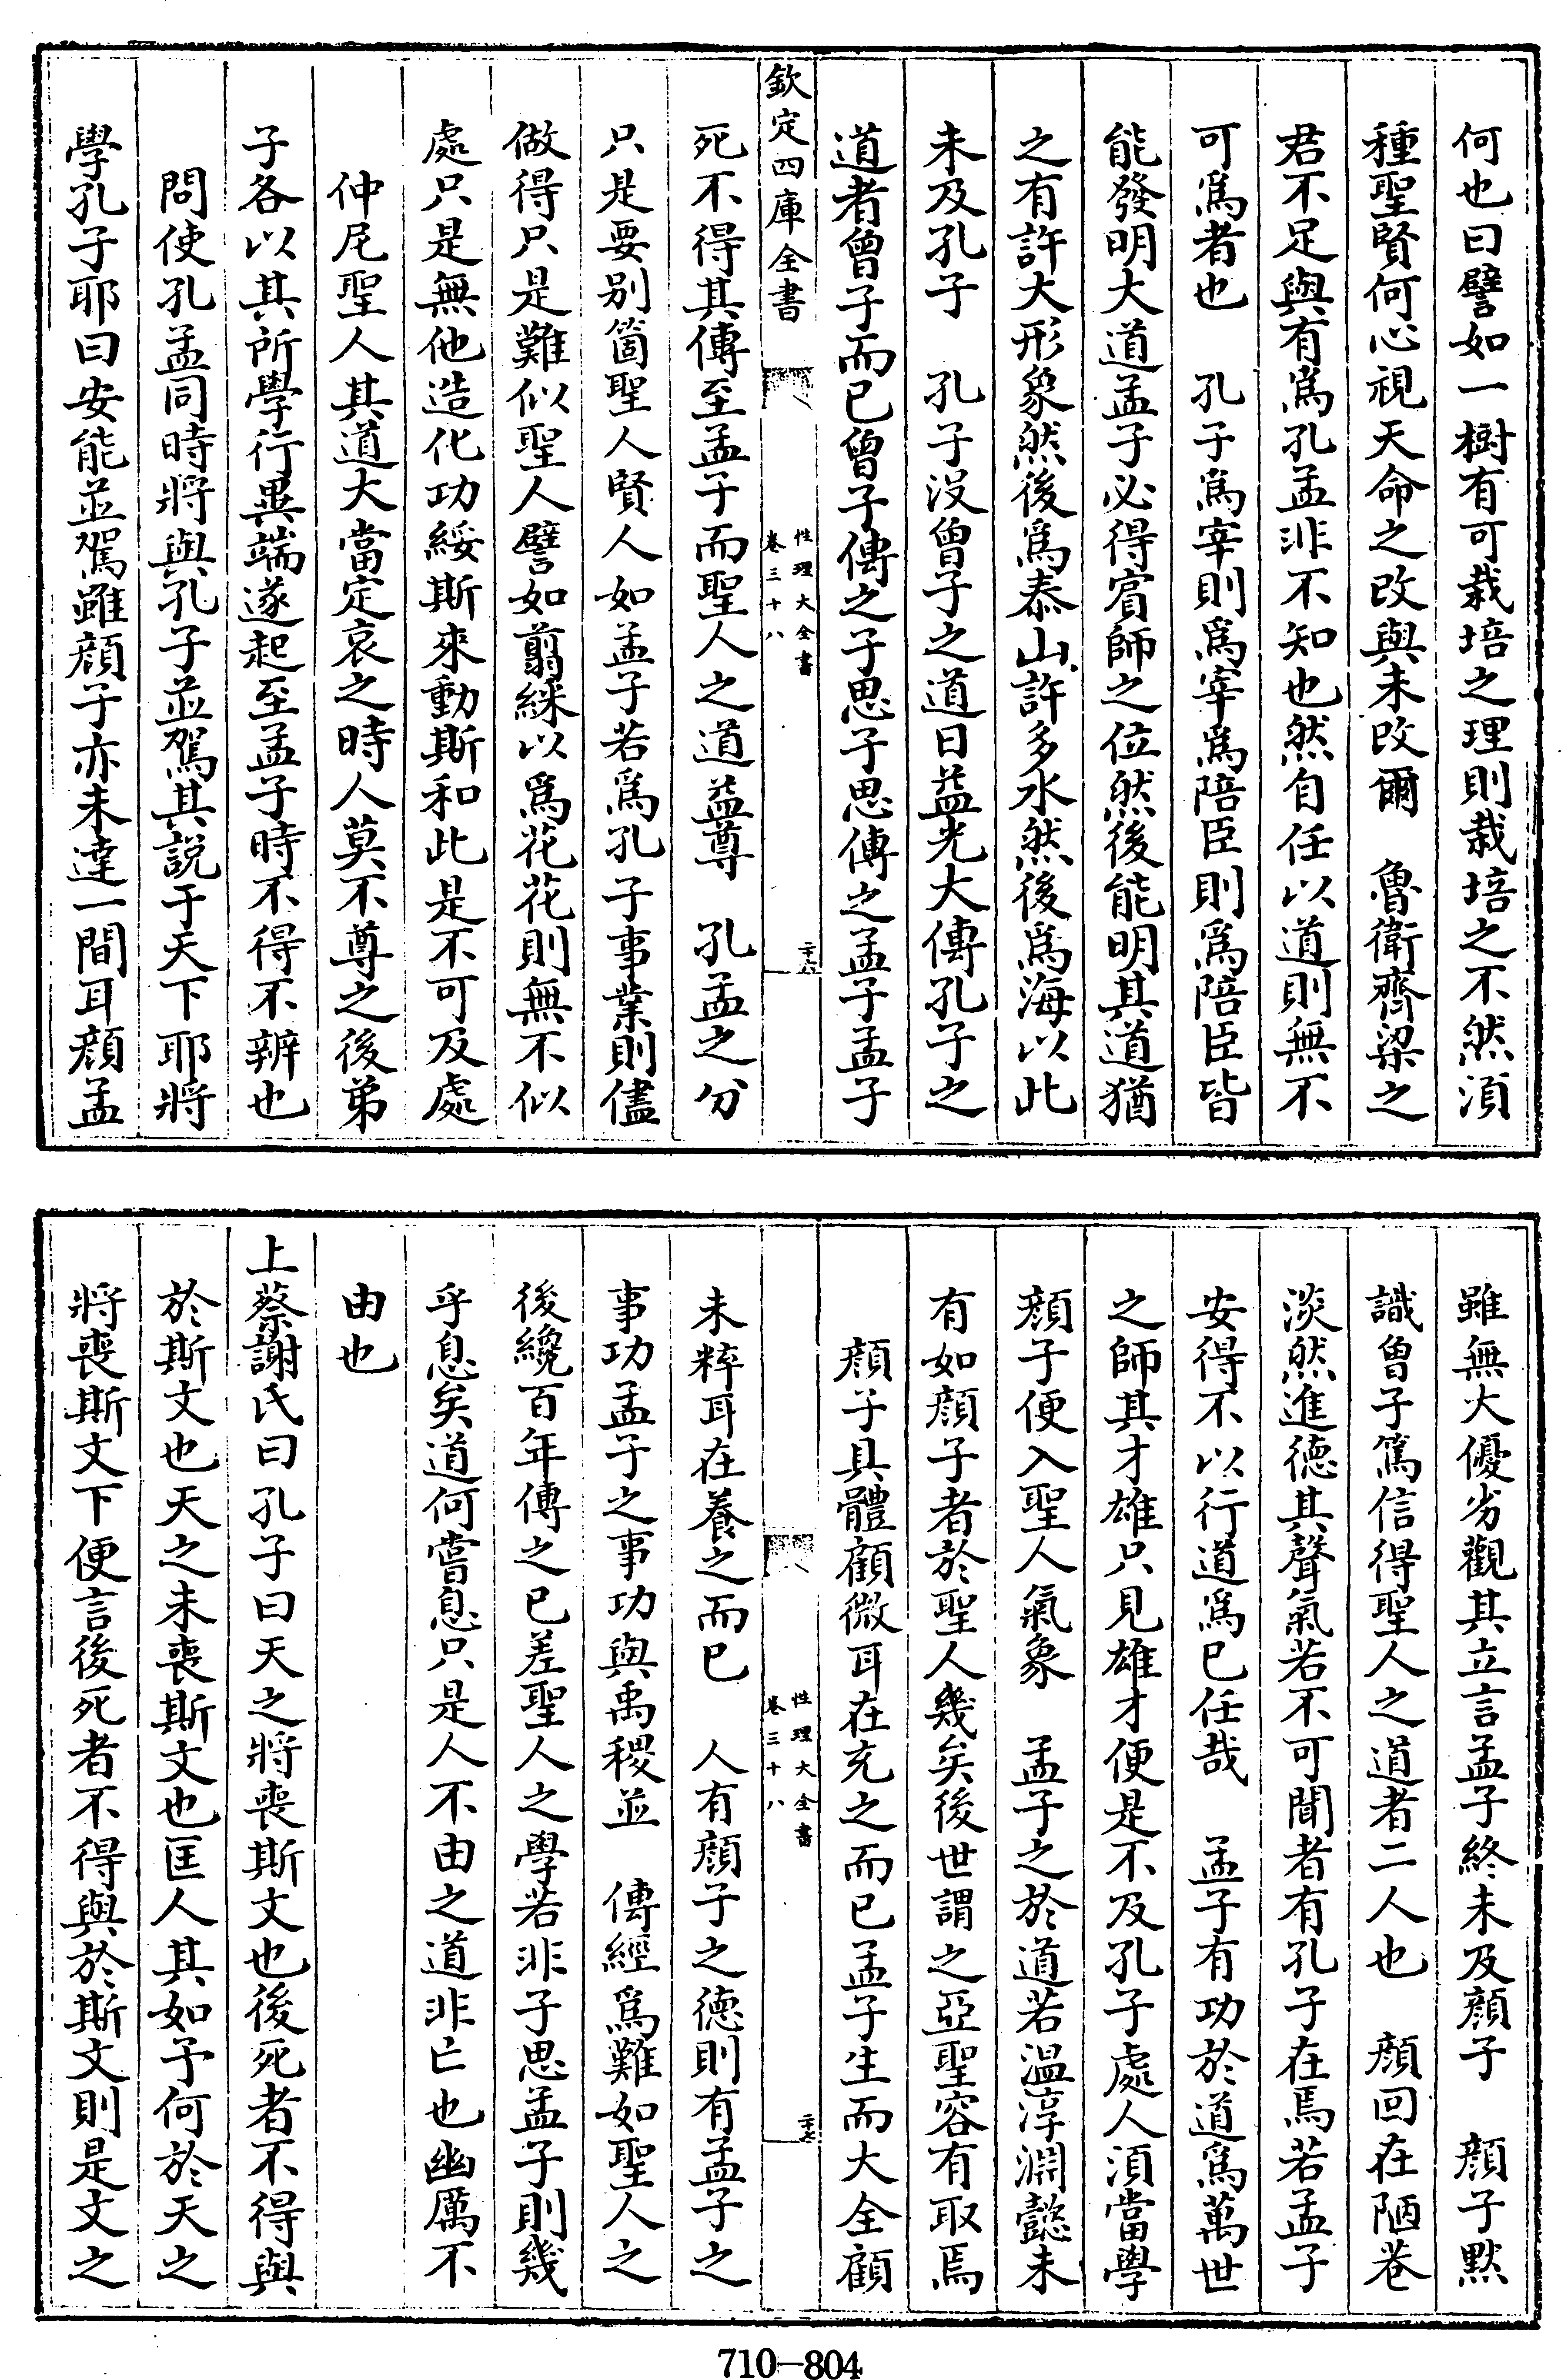 何也曰譬如一樹有可栽培之理則栽培之不然湏
種聖賢何心視天命之改與未改爾　魯衛齊梁之
君不足與有爲孔孟非不知也然自任以道則無不
可爲者也　孔子爲宰則爲宰爲陪臣則爲陪臣皆
能發明大道孟子必得賔師之位然後能明其道猶
之有許大形象然後爲泰山許多水然後爲海以此
未及孔子　孔子沒曾子之道日益光大傳孔子之
道者曾子而已曾子傳之子思子思傳之孟子孟子
欽定四庫全書
性理大全書
卷三十八
二十六
死不得其傳至孟子而聖人之道益尊　孔孟之分
只是要别箇聖人賢人如孟子若爲孔子事業則儘
做得只是難似聖人譬如翦綵以爲花花則無不似
處只是無他造化功綏斯來動斯和此是不可及處
仲尼聖人其道大當定哀之時人莫不尊之後弟
子各以其所學行異端遂起至孟子時不得不辨也
問使孔孟同時將與孔子並駕其説于天下耶將
學孔子耶曰安能並駕雖顔子亦未達一間耳顔孟
雖無大優劣觀其立言孟子終未及顔子　顔子黙
識曾子篤信得聖人之道者二人也　顔回在陋巷
淡然進德其聲氣若不可聞者有孔子在焉若孟子
安得不以行道爲已任哉　孟子有功於道爲萬世
之師其才雄只見雄才便是不及孔子處人湏當學
顔子便入聖人氣象　孟子之於道若温淳淵懿未
有如顔子者於聖人幾矣後世謂之亞聖容有取焉
顔子具體顧微耳在充之而已孟子生而大全顧
性理大全書
卷三十八
二十七
未粹耳在養之而已　人有顔子之德則有孟子之
事功孟子之事功與禹稷並　傳經爲難如聖人之
後纔百年傳之已差聖人之學若非子思孟子則幾
乎息矣道何嘗息只是人不由之道非亡也幽厲不
由也
上蔡謝氏曰孔子曰天之將喪斯文也後死者不得與
於斯文也天之未喪斯文也匡人其如予何於天之
將喪斯文下便言後死者不得與於斯文則是文之
710—804